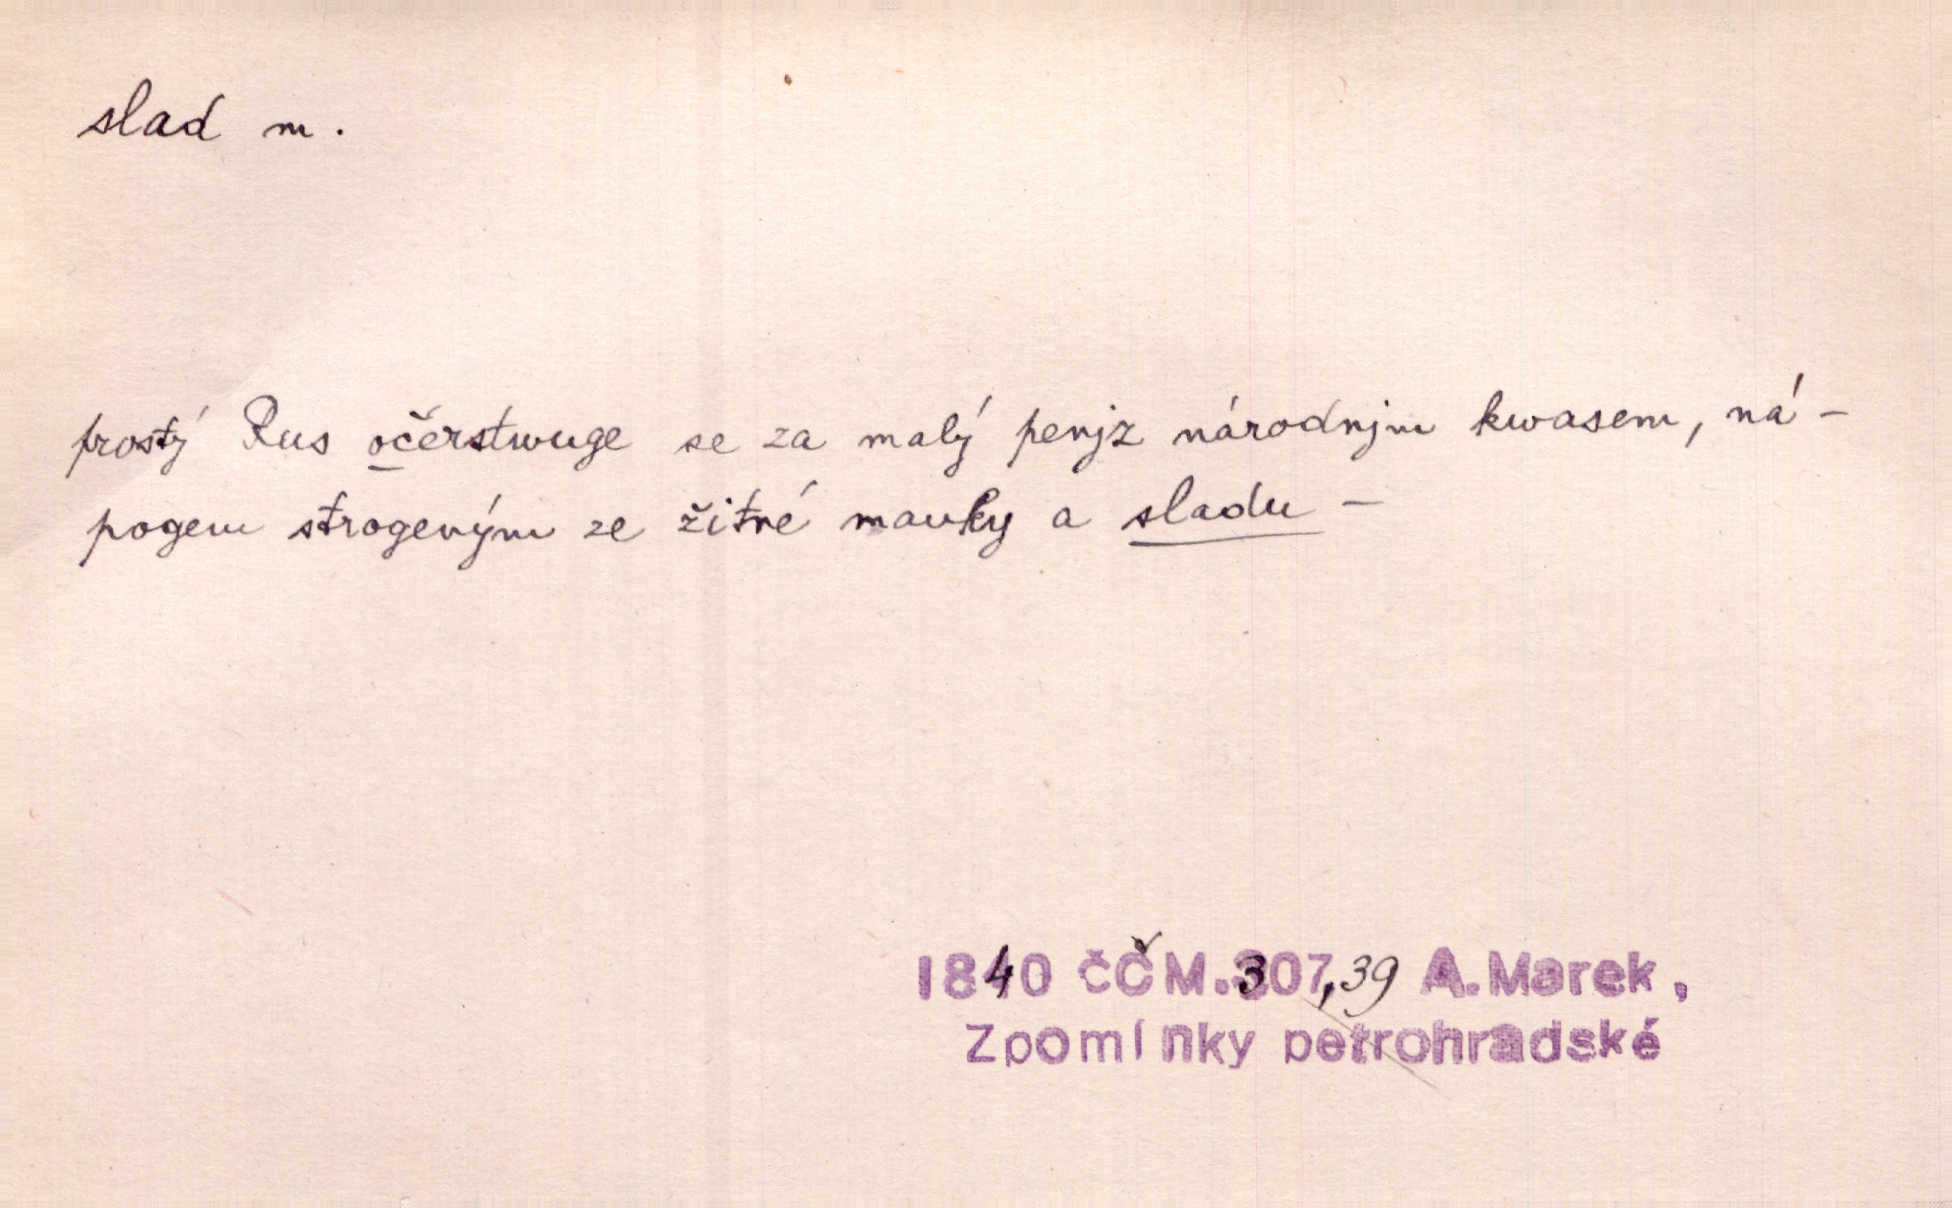 slad m.
prostý Rus očerstwuge se za malý penjz národnjm kwasem, ná-
pogem strogeným ze žitné mauky a sladu –
1840 čČM.307,39 A.Marek,
Zpomínky petrohradské